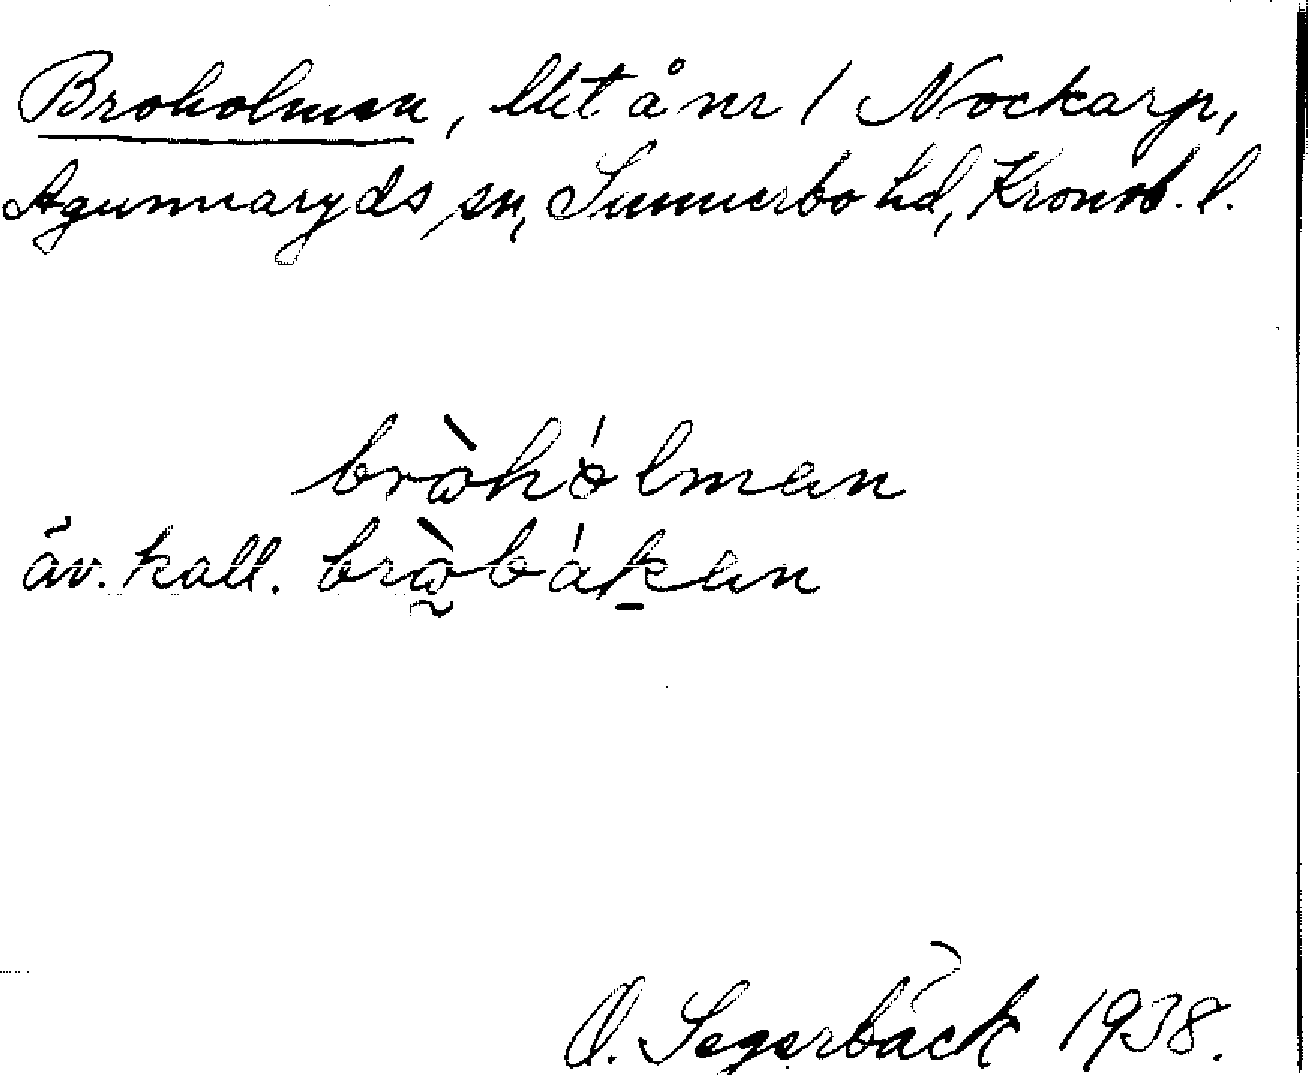 Broholmen, lht å nr 1 Nockarp,
Agunnaryds sn, Sunnerbo hd, Kronob. l.
bròhólmen
äv. kall. bròbákan
O. Segerbäck 1938.